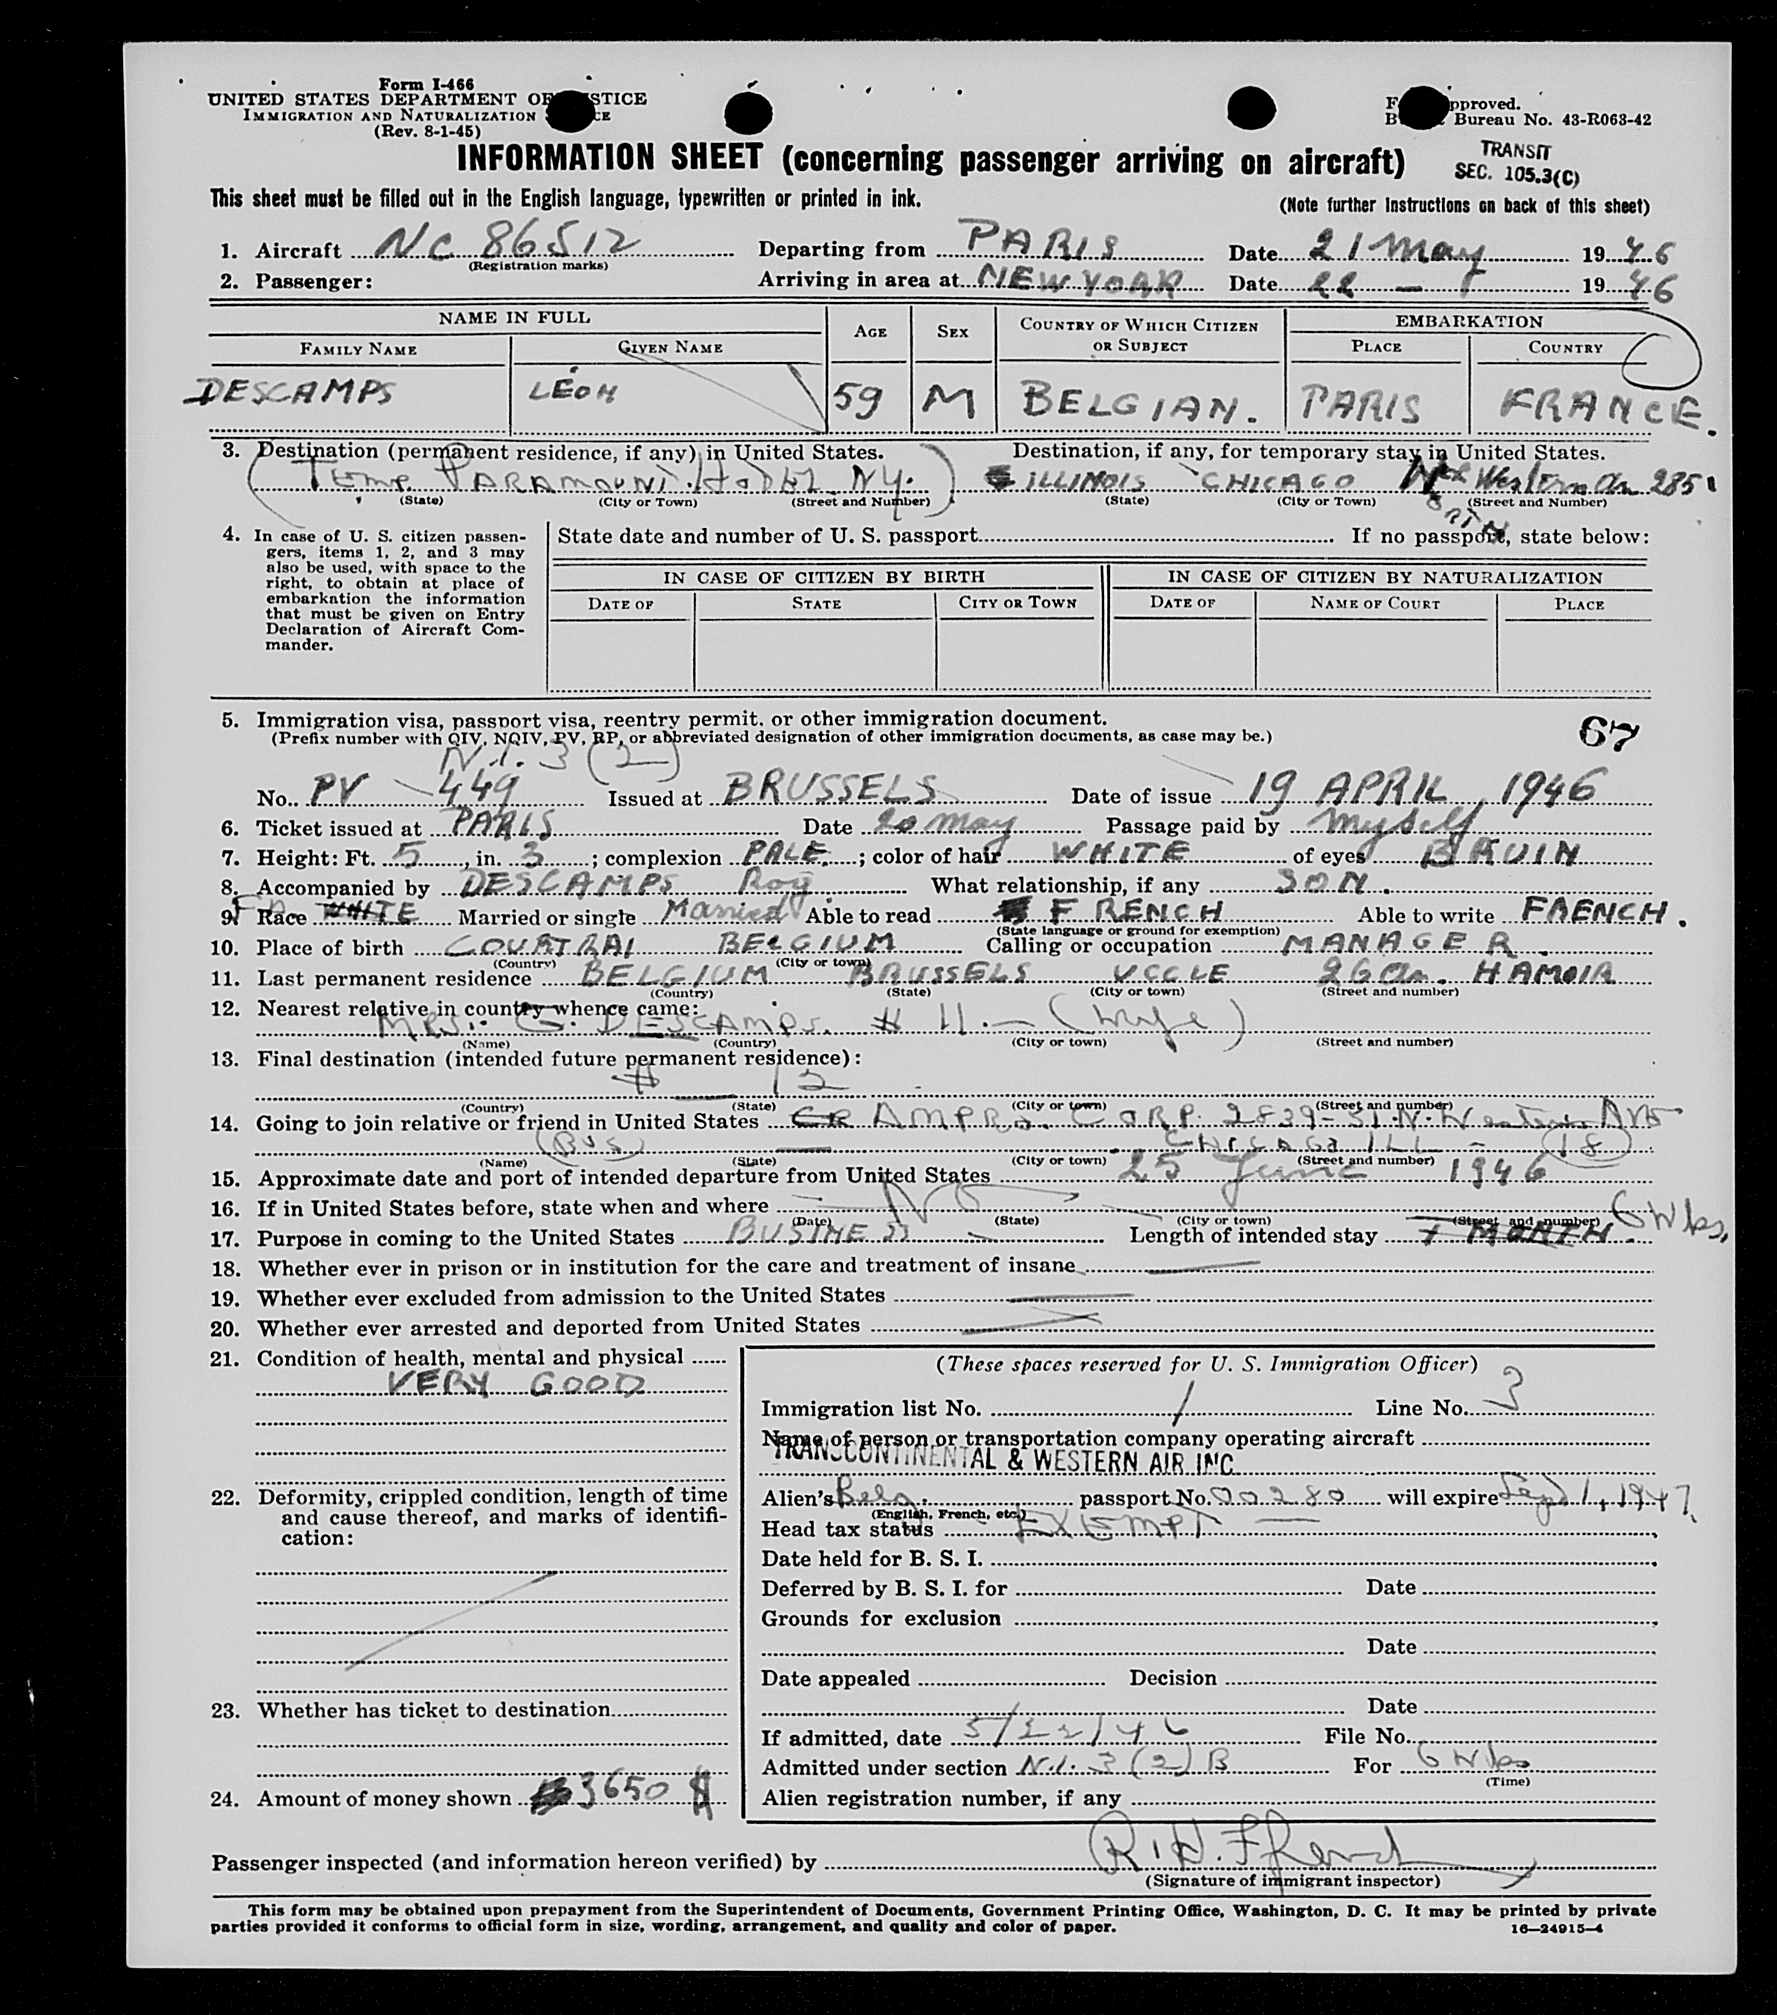 Form I-466
UNITED STATES DEPARTMENT OF JUSTICE
IMMIGRATION AND NATURALIZATION SERVICE
(Rev. 8-1-45)
Approved.
Bureau No. 43-R063-42
INFORMATION SHEET (concerning passenger arriving on aircraft)
TRANSIT
SEC. 105.3(C)
This sheet must be filled out in the English language, typewritten or printed in ink.
(Note further instructions on back of this sheet)
1. Aircraft NC 86512 Departing from PARIS Date 21 May 1946
(Registration marks)
2. Passenger: Arriving in area at NEW YORK Date 22 — 1946
NAME IN FULL AGE SEX COUNTRY OF WHICH CITIZEN OR SUBJECT EMBARKATION
FAMILY NAME GIVEN NAME PLACE COUNTRY
DESCAMPS LÉON 59 M BELGIAN. PARIS FRANCE.
3. Destination (permanent residence, if any) in United States. Destination, if any, for temporary stay in United States.
(Temp PARAMOUNT HOTEL NY.) ILLINOIS CHICAGO Western 2851
(State) (City or Town) (Street and Number) (State) (City or Town) (Street and Number)
4. In case of U. S. citizen passen-
gers, items 1, 2, and 3 may
also be used, with space to the
right, to obtain at place of
embarkation the information
that must be given on Entry
Declaration of Aircraft Com-
mander.
State date and number of U. S. passport If no passport, state below:
IN CASE OF CITIZEN BY BIRTH IN CASE OF CITIZEN BY NATURALIZATION
DATE OF STATE CITY OR TOWN DATE OF NAME OF COURT PLACE
5. Immigration visa, passport visa, reentry permit, or other immigration document.
67
(Prefix number with QIV, NQIV, PV, RP, or abbreviated designation of other immigration documents, as case may be.)
N.I. 3 (2)
No. PV 449 Issued at BRUSSELS Date of issue 19 APRIL 1946
6. Ticket issued at PARIS Date 20 May Passage paid by Myself
7. Height: Ft. 5, in. 3; complexion PALE; color of hair WHITE of eyes BRUIN
8. Accompanied by DESCAMPS Roy What relationship, if any SON.
9. Race WHITE Married or single Married Able to read FRENCH Able to write FRENCH.
(State language or ground for exemption)
10. Place of birth COURTRAI BELGIUM Calling or occupation MANAGER.
(Country) (City or town)
11. Last permanent residence BELGIUM BRUSSELS UCCLE 26 Av. HAMOIR
(Country) (State) (City or town) (Street and number)
12. Nearest relative in country whence came:
MRS. G. DESCAMPS. # 11. — (wife)
(Name) (Country) (City or town) (Street and number)
13. Final destination (intended future permanent residence):
# 12
(Country) (State) (City or town) (Street and number)
14. Going to join relative or friend in United States AMPRO CORP. 2839-51 N. Western Ave
(BUS) CHICAGO ILL — (18)
(Name) (State) (City or town) (Street and number)
15. Approximate date and port of intended departure from United States 25 June 1946
16. If in United States before, state when and where — NO —
(Date) (State) (City or town) (Street and number)
17. Purpose in coming to the United States BUSINESS Length of intended stay 1 MONTH. 6 Wks.
18. Whether ever in prison or in institution for the care and treatment of insane —
19. Whether ever excluded from admission to the United States —
20. Whether ever arrested and deported from United States —
21. Condition of health, mental and physical
VERY GOOD
22. Deformity, crippled condition, length of time
and cause thereof, and marks of identifi-
cation:
23. Whether has ticket to destination
24. Amount of money shown 3650 $
(These spaces reserved for U. S. Immigration Officer)
Immigration list No. 1 Line No. 3
Name of person or transportation company operating aircraft
TRANSCONTINENTAL & WESTERN AIR INC
Alien's Belg. passport No. 00280 will expire Sept 1, 1947.
(English, French, etc.)
Head tax status EXEMPT —
Date held for B. S. I.
Deferred by B. S. I. for Date
Grounds for exclusion
Date
Date appealed Decision
Date
If admitted, date 5/22/46 File No.
Admitted under section N.I. 3 (2) B For 6 Wks
(Time)
Alien registration number, if any
Passenger inspected (and information hereon verified) by
(Signature of immigrant inspector)
This form may be obtained upon prepayment from the Superintendent of Documents, Government Printing Office, Washington, D. C. It may be printed by private
parties provided it conforms to official form in size, wording, arrangement, and quality and color of paper.
16—24915-4